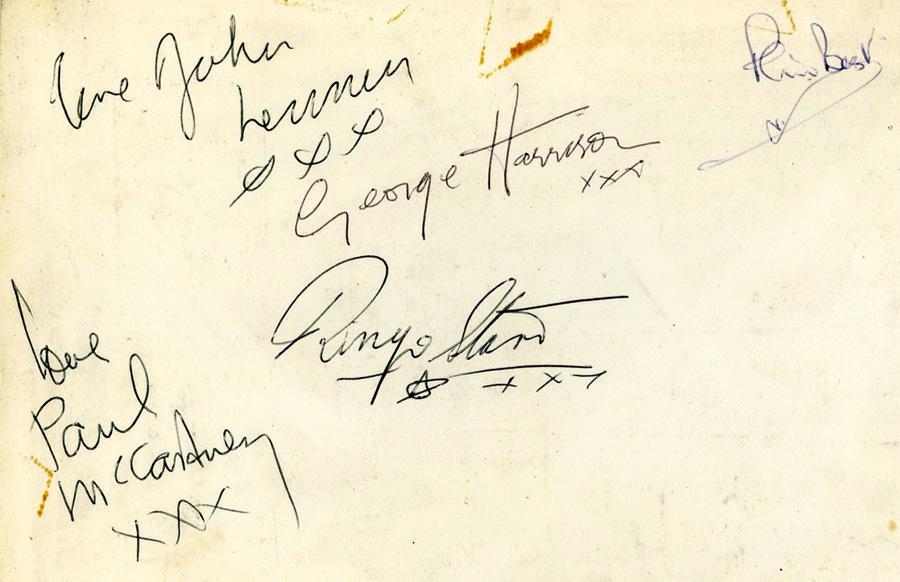 love John
Lennon
xxx
George Harrison
xxx
Ringo Starr
xxx
love
Paul
McCartney
xxx
Best